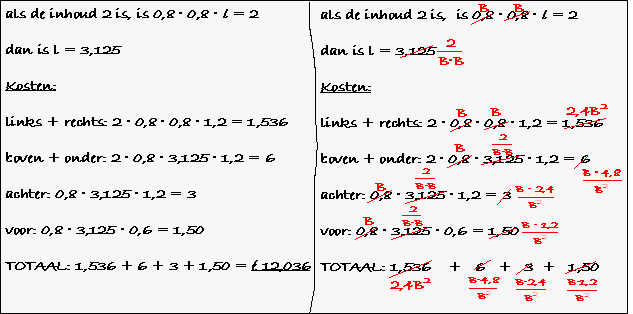 als de inhoud 2 is, is 0,8 · 0,8 · l = 2
dan is l = 3,125
Kosten:
links + rechts: 2 · 0,8 · 0,8 · 1,2 = 1,536
boven + onder: 2 · 0,8 · 3,125 · 1,2 = 6
achter: 0,8 · 3,125 · 1,2 = 3
voor: 0,8 · 3,125 · 0,6 = 1,50
TOTAAL: 1,536 + 6 + 3 + 1,50 = f 12,036
B B
als de inhoud 2 is, is 0,8 · 0,8 · l = 2
dan is l = 3,125 2/B·B
Kosten:
B B 2,4B²
links + rechts: 2 · 0,8 · 0,8 · 1,2 = 1,536
B 2/B·B
boven + onder: 2 · 0,8 · 3,125 · 1,2 = 6 B·4,8/B²
B 2/B·B
achter: 0,8 · 3,125 · 1,2 = 3 B·2,4/B²
B 2/B·B
voor: 0,8 · 3,125 · 0,6 = 1,50 B·1,2/B²
TOTAAL: 1,536 + 6 + 3 + 1,50
2,4B² B·4,8/B² B·2,4/B² B·1,2/B²